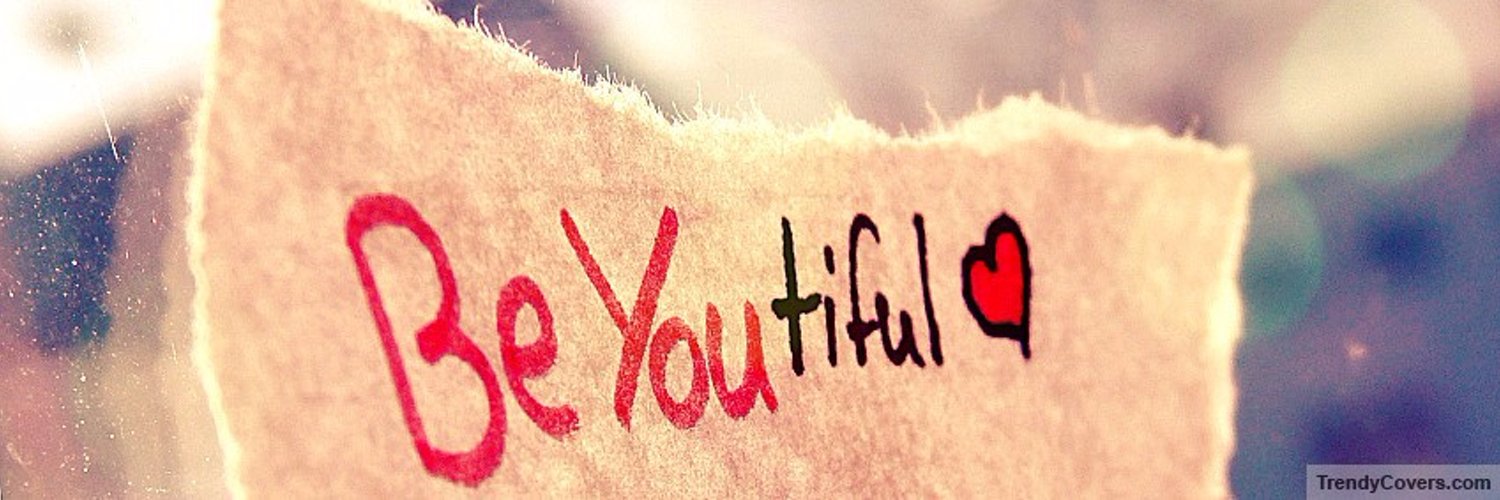 BeYoutiful
TrendyCovers.com